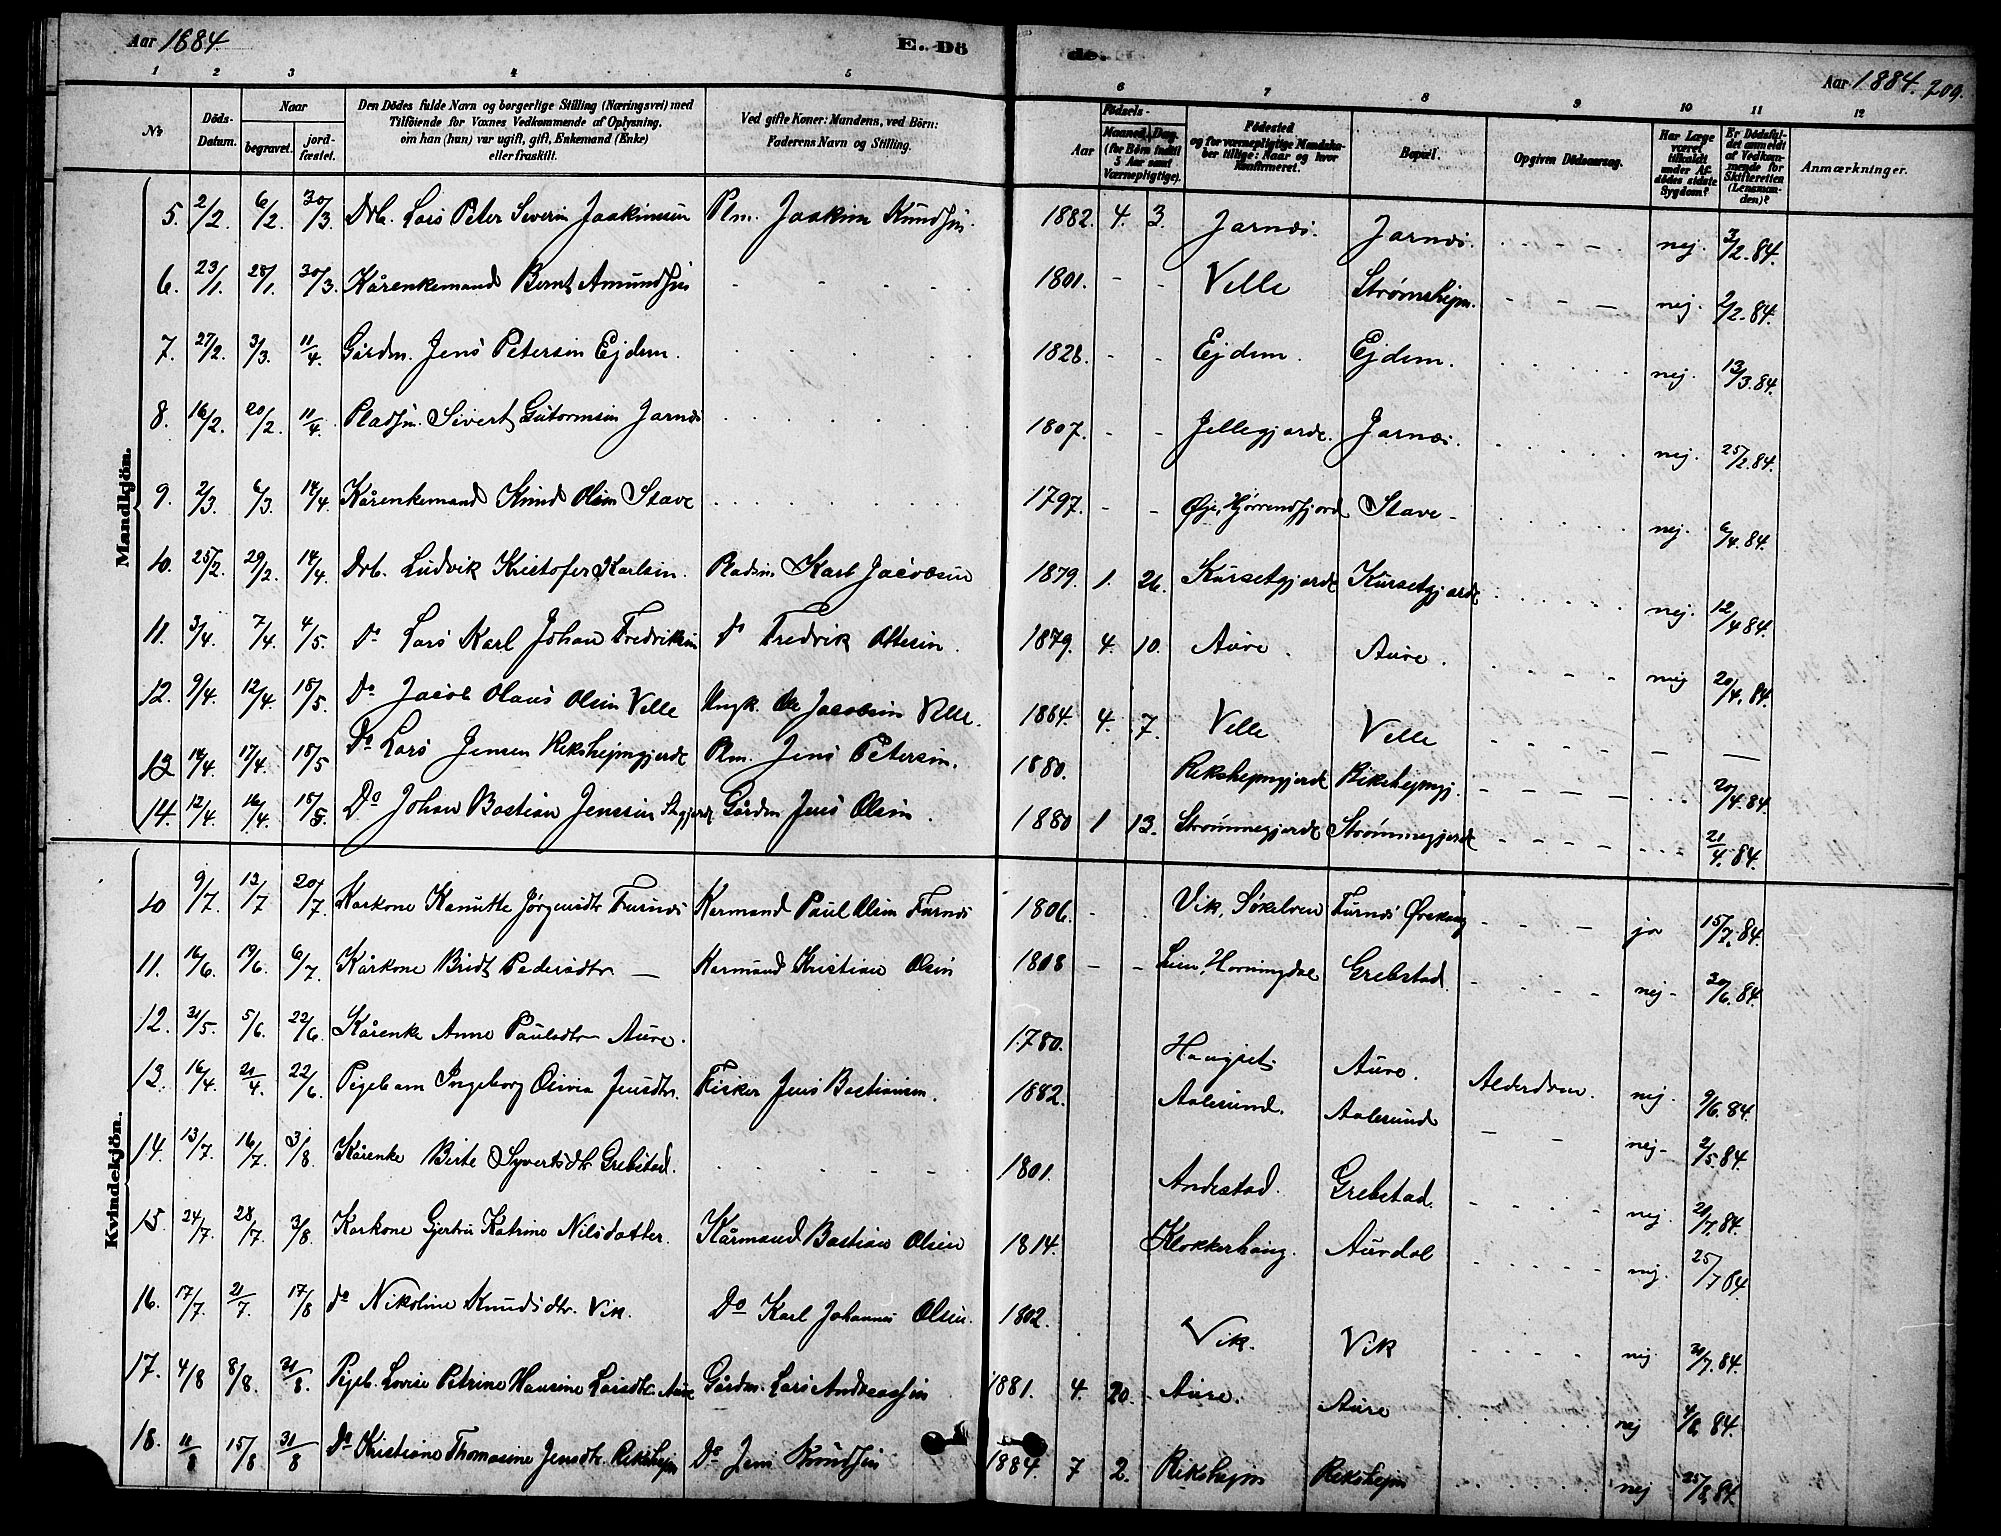 Aar 1884.
E. Dö
de.
Aar 1884. 209.
1 2 3 4 5 6 7 8 9 10 11 12
No
Döds-Datum.
Naar
begravet.
jord-fæstet.
Den Dödes fulde Navn og borgerlige Stilling (Næringsvei) med
Tilföiende for Voxnes Vedkommende af Oplysning,
om han (hun) var ugift, gift, Enkemand (Enke)
eller fraskilt.
Ved gifte Koner: Mandens, ved Börn:
Faderens Navn og Stilling.
Födsels-
Aar
Maaned, Dag
(for Börn indtil
5 Aar samt
Værnepligtige).
Födested
og for værnepligtige Mandska-
ber tillige: Naar og hvor
Konfirmeret.
Bopæl.
Opgiven Dödsaarsag.
Har Læge
været
tilkaldt
under Af-
dödes sidste
Sygdom?
Er Dödsfal-
det anmeldt
af Vedkom-
mende for
Skifteretten
(Lensman-
den)?
Anmærkninger.
Mandkjön.
5. 2/2. 6/2. 30/3. Drb. Lars Peter Severin Joakimsen Plm. Joakim Knudsen. 1882. 4. 3. Jarnæs. Jarnæs. nej. 3/2. 84.
6. 23/1. 28/1. 30/3. Kårenkemand Bernt Amundsen 1801. Velle Strømshejm. nej. 2/2. 84.
7. 27/2. 3/3. 11/4. Gårdm. Jens Petersen Ejdem. 1828. Ejdem. Ejdem. nej. 13/3. 84.
8. 16/2. 20/2. 11/4. Pladsm. Sivert Gutormsen Jarnæs 1807. Jellegjærde. Jarnæs. nej. 25/2. 84.
9. 2/3. 6/3. 14/4. Kårenkemand Knud Olsen Stave 1797. Øje, Hjørrendfjord Stave nej. 6/4. 84.
10. 25/2. 29/2. 14/4. Drb. Ludvik Kristofer Karlsen. Pladsm Karl Jacobsen 1879. 1. 26. Kursetgjærde Kursetgjærde nej. 12/4 84.
11. 3/4. 7/4. 4/5. Do Lars Karl Johan Fredriksen Do Fredrik Ottesen. 1879. 4. 10. Aure. Aure. nej 20/4. 84.
12. 9/4. 12/4. 18/5. Do Jacob Olaus Olsen Velle Ungk. Ole Jacobsen Velle. 1884. 4. 7. Velle Velle
13 14/4. 17/4. 18/5 Do Lars Jensen Rekshejmgjerde Plm. Jens Petersen. 1880. Rekshejmgjerde Rekshejmgj. 20/4. 84.
14. 12/4. 16/4. 18/5. Do Johan Bastian Jenssen Stgjerde Gårdm Jens Olsen. 1880 1 13. Strømmegjerde Strømmegjerde 21/4. 84.
Kvindekjön.
10 9/7. 12/7 20/7. Karkone Kanutte Jørgensdtr Furnæs Karmand Paul Olsen Furnæs 1806. Vik, Søkelven Furnæs Ørskoug ja 15/7. 84.
11. 16/6. 19/6. 6/7. Kårkone Bridt Pedersdtr Karmand Kristian Olsen 1808 Leen, Horningdal Grebstad nej 20/6. 84.
12. 31/5. 5/6. 22/6. Kårenke Anne Paulsdtr Aure. 1780. Haugset Aure. Alderdom. nej. 9/6. 84.
13. 16/4. 21/4 22/6. Pigebarn Ingeborg Olivia Jensdtr. Fisker Jens Bastiansen. 1882. Aalesund. Aalesund nej. 2/5 84.
14. 13/7. 16/7. 3/8. Kårenke Birte Syvertsdtr Grebstad. 1801. Andestad. Grebstad. nej. 21/7. 84.
15. 24/7. 28/7. 3/8. Karkone Gjertru Katrine Nilsdatter. Kårmand Bastian Olsen 1814. Klokkerhaug. Aurdal nej. 25/7 84
16. 17/7. 21/7. 17/8 do Nikoline Knudsdtr. Vik. Do Karl Johannes Olsen. 1802. Vik. Vik nej 21/7. 84.
17. 4/8 8/8. 31/8. Pigeb. Lovise Petrine Hansine Larsdtr Aure Gårdm. Lars Andreassen 1881. 4. 20. Aure. Aure nej 9/8 84.
18. 11/8 15/8 31/8 Do Kristiane Thomasine Jensdtr. Rekshejm Do Jens Knudsen 1884. 7 2. Rekshejm Rekshejm nej 25/8. 84.